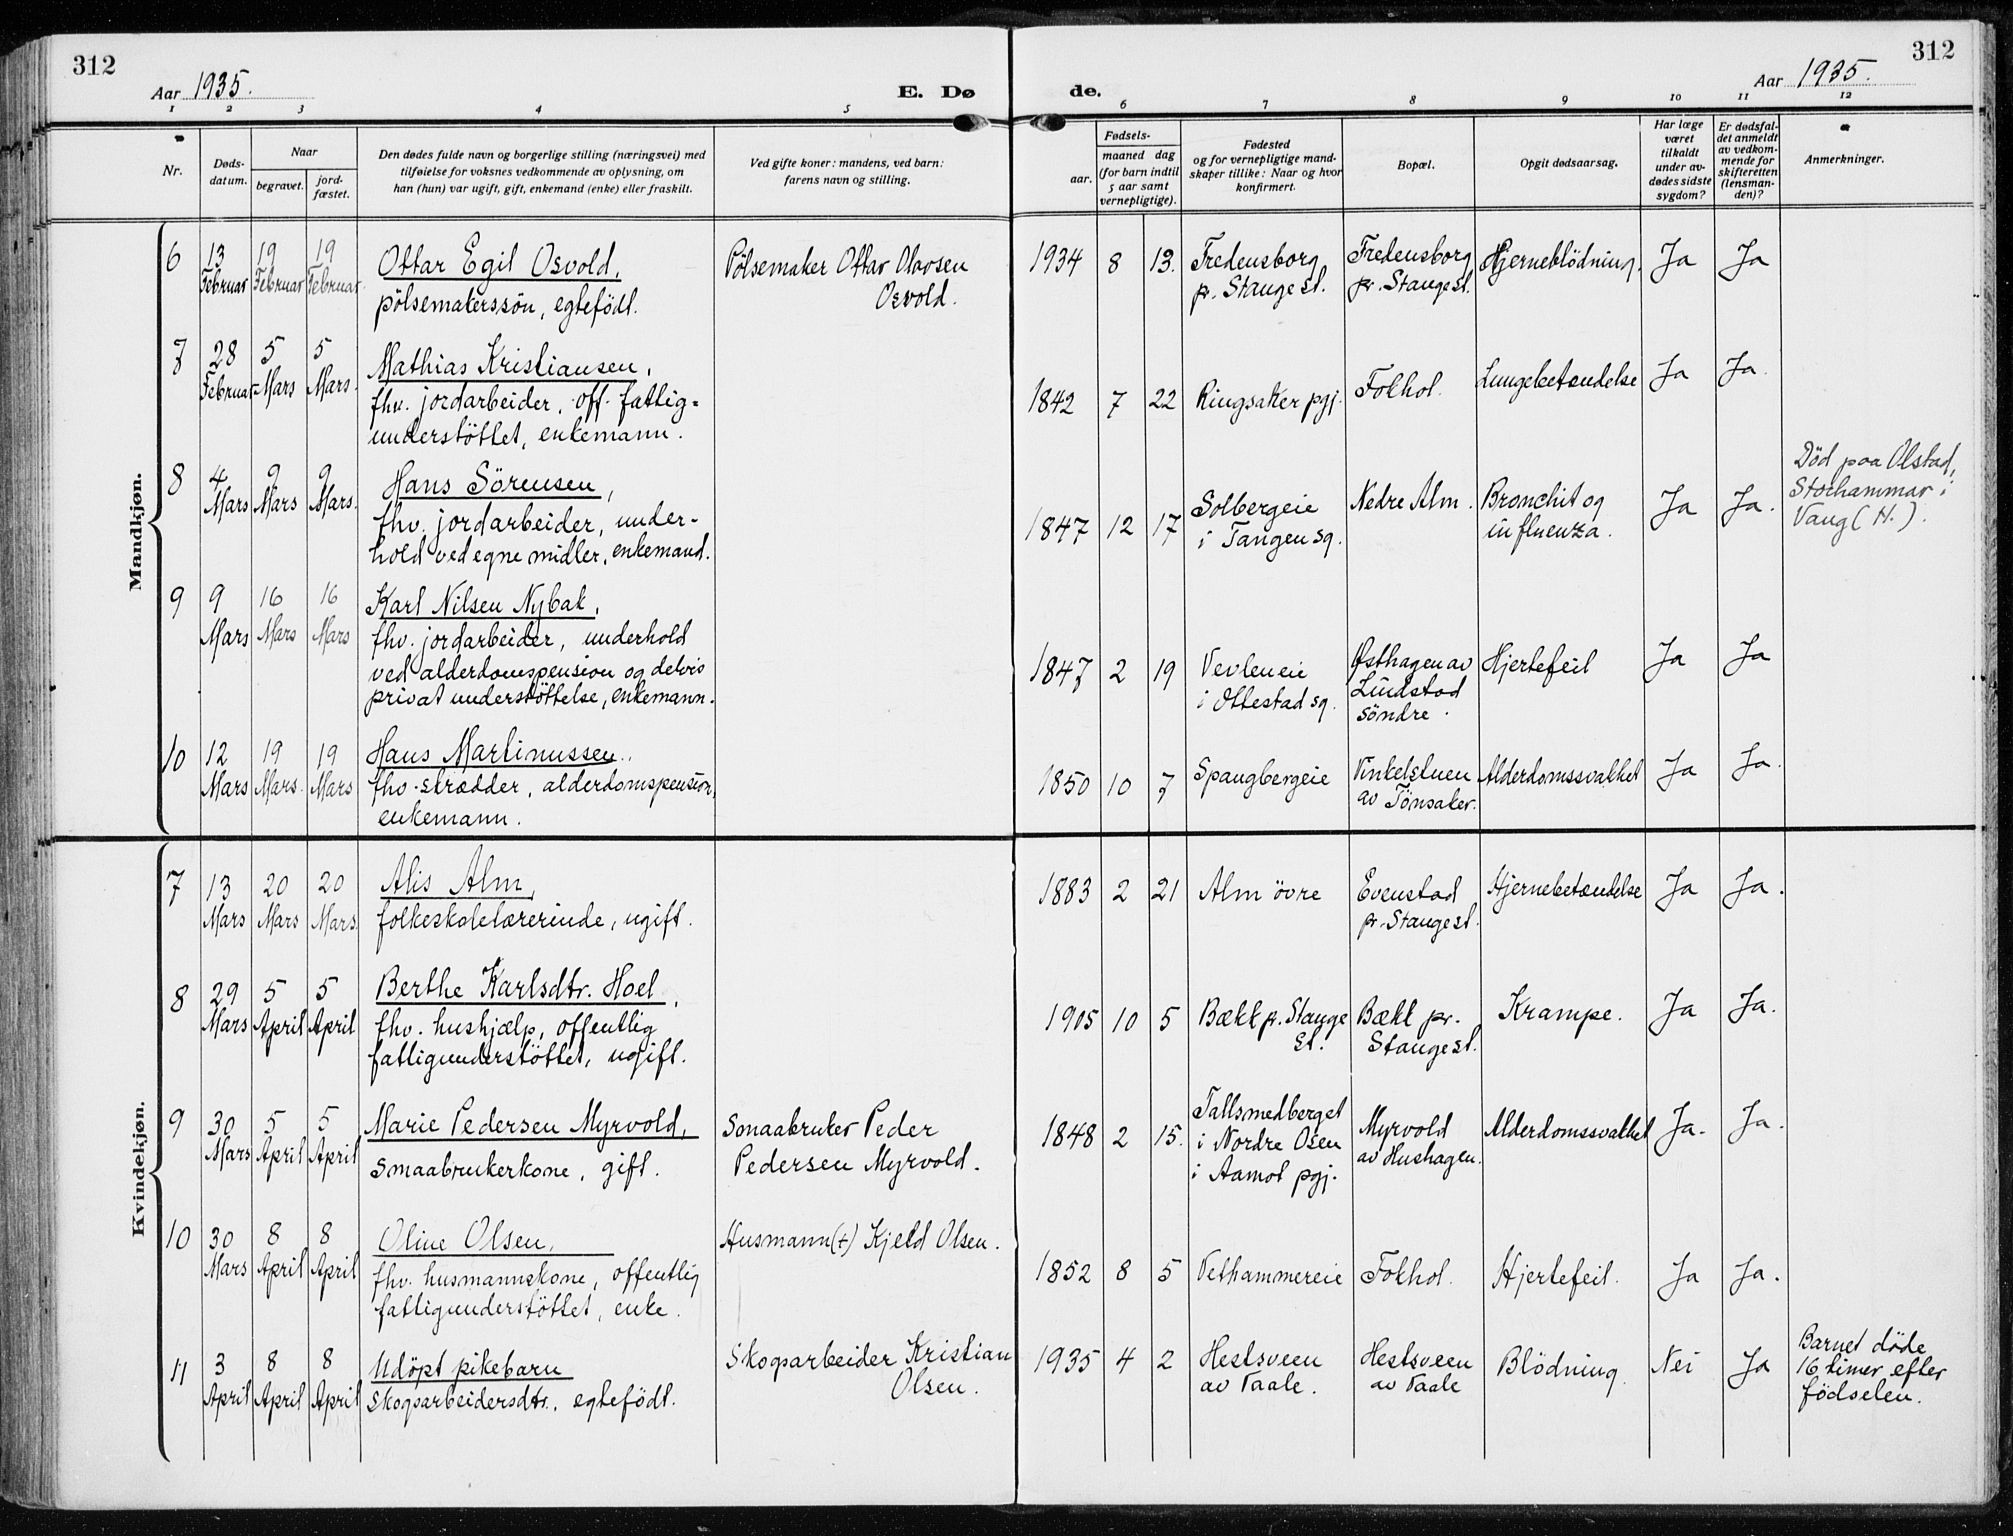 312
Aar 1935.
E. Dø
1 2 3 4 5
Nr.
Døds-
datum.
Naar
begravet.
jord-
fæstet.
Den dødes fulde navn og borgerlige stilling (næringsvei) med
tilføielse for voksnes vedkommende av oplysning, om
han (hun) var ugift, gift, enkemand (enke) eller fraskilt.
Ved gifte koner: mandens, ved barn:
farens navn og stilling.
312
de.
Aar 1935.
6 7 8 9 10 11 12
Fødsels-
aar.
maaned dag
(for barn indtil
5 aar samt
vernepligtige).
Fødested
og for vernepligtige mand-
skaper tillike: Naar og hvor
konfirmert.
Bopæl.
Opgit dødsaarsag.
Har læge
været
tilkaldt
under av-
dødes sidste
sygdom?
Er dødsfal-
det anmeldt
av vedkom-
mende for
skifteretten
(lensman-
den)?
Anmerkninger.
Mandkjøn.
6 13 19 19 Ottar Egil Osvold, Pölsemaker Ottar Olavsen 1934 8 13. Fredensborg Fredensborg Hjerneblödning. Ja Ja
Februar Februar Februar. pölsemakerssön, egtefödt. Osvold. pr. Stange st. pr. Stange st.
7 28 5 5 Mathias Kristiansen, Lungebetændelse Ja Ja.
Februar Mars Mars. fhv. jordarbeider, off. fattig- 1842 7 22 Ringsaker pgj. Fokhol.
understöttet, enkemann.
8 4 9 9 Hans Sörensen, Solbergeie Nedre Alm. Bronchit og Ja Ja. Död paa Olstad,
Mars Mars Mars. fhv. jordarbeider, under- 1847 12 17 i Tangen sg. influenza. Storhammar i
hold ved egne midler, enkemand. Vang (H.).
9 9 16 16 Karl Nilsen Nybak,
Mars Mars Mars fhv. jordarbeider, underhold
ved alderdomspension og delvis 1847 2 19 Vevleneie Østhagen av Hjertefeil Ja Ja
privat understöttelse, enkemann. i Ottestad sg. Lindstad
söndre.
10 12 19 19 Hans Martinussen, 1850 10 7 Spangbergeie Vinkelstuen Alderdomssvakhet Ja Ja.
Mars Mars. Mars fhv. skrædder, alderdomspension, av Tönsaker.
enkemann.
Kvindekjøn.
7 13 20 20 Alis Alm, 1883 2 21 Alm övre Evenstad Hjernebetændelse Ja Ja.
Mars Mars Mars. folkeskolelærerinde, ugift. pr. Stange st.
8 29 5 5 Berthe Karlsdtr. Hoel,
Mars April April fhv. hushjælp, offentlig 1905 10 5 Bækk p. Stange Bækk pr. Krampe. Ja Ja.
fattigunderstöttet, ugift. st. Stange st.
9 30 5 5 Marie Pedersen Myrvold, Smaabruker Peder 1848 2 15. Tallsmedberget Myrvold Alderdomssvakhet Ja. Ja.
Mars April April Smaabrukerkone, gift. Pedersen Myrvold. i Nordre Osen av Hushagen.
i Aamot pgj.
10 30 8 8 Oline Olsen, Husmann (+) Kjeld Olsen.
Mars April April fhv. husmannskone, offentlig 1852 8 5 Vethammereie Fokhol. Hjertefeil. Ja Ja.
fattigunderstöttet, enke.
11 3 8 8 Udöpt pikebarn Skogsarbeider Kristian 1935 4 2 Hestsveen Hestsveen Blödning. Nei Ja Barnet döde
April April April Skogsarbeidersdtr., egtefödt. Olsen. av Vaale. av Vaale 16 timer efter
födselen.